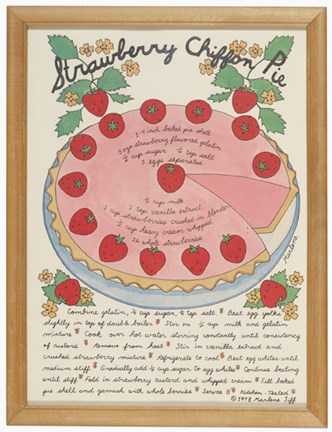 Strawberry Chiffon Pie
1-9 inch baked pie shell
3 ozs strawberry flavored gelatin
½ cup sugar ¼ tsp salt
3 eggs separated
½ cup milk
1 tsp vanilla extract
1 cup strawberries crushed in blender
½ cup heavy cream whipped
12 whole strawberries
Marlene
Combine gelatin, ¼ cup sugar, ¼ tsp salt Beat egg yolks
slightly in top of double boiler Stir in ½ cup milk and gelatin
mixture Cook over hot water stirring constantly until consistency
of custard remove from heat Stir in vanilla extract and
crushed strawberry mixture Refrigerate to cool Beat egg whites until
medium stiff Gradually add ¼ cup sugar to egg whites Continue beating
until stiff Fold in strawberry custard and whipped cream Fill baked
pie shell and garnish with whole berries Serves 8 Kitchen-Tested
© 1978 Marlene Siff